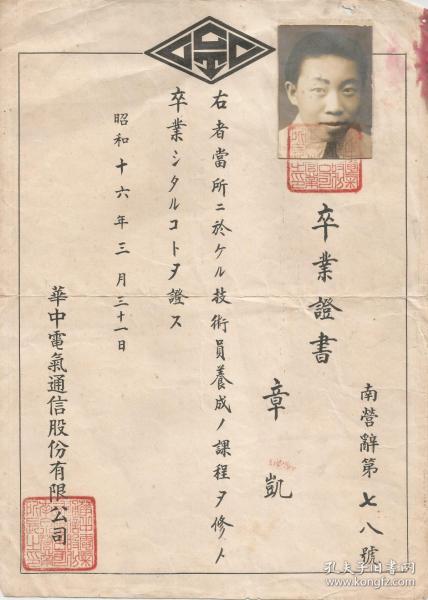 南營辭第七八號
卒業證書
章凱
右者當所ニ於ケル技術員養成ノ課程ヲ修ト
卒業シタルコトヲ證ス
昭和十六年三月三十一日
華中電氣通信股份有限公司
孔夫子旧书网
www.kongfz.com